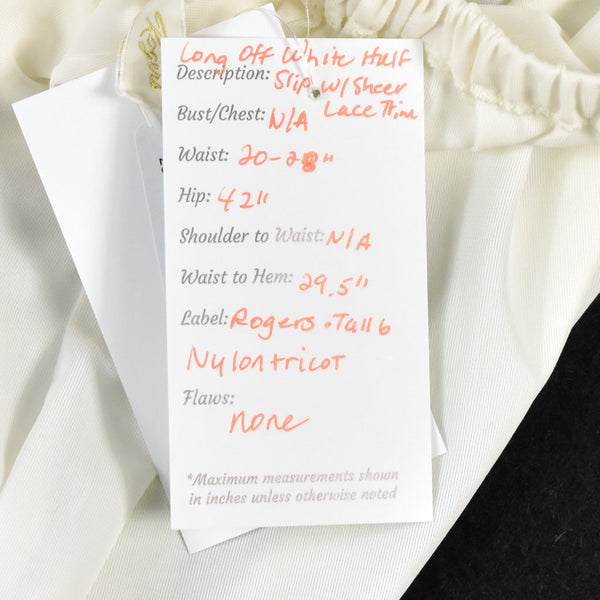 Rogers
Long Off White Half
Description: Slip w/ Sheer
Lace Trim
Bust/Chest: N/A
Waist: 20-28"
Hip: 42"
Shoulder to Waist: N/A
Waist to Hem: 29.5"
Label: Rogers. Tall 6
Nylon tricot
Flaws:
none
*Maximum measurements shown
in inches unless otherwise noted